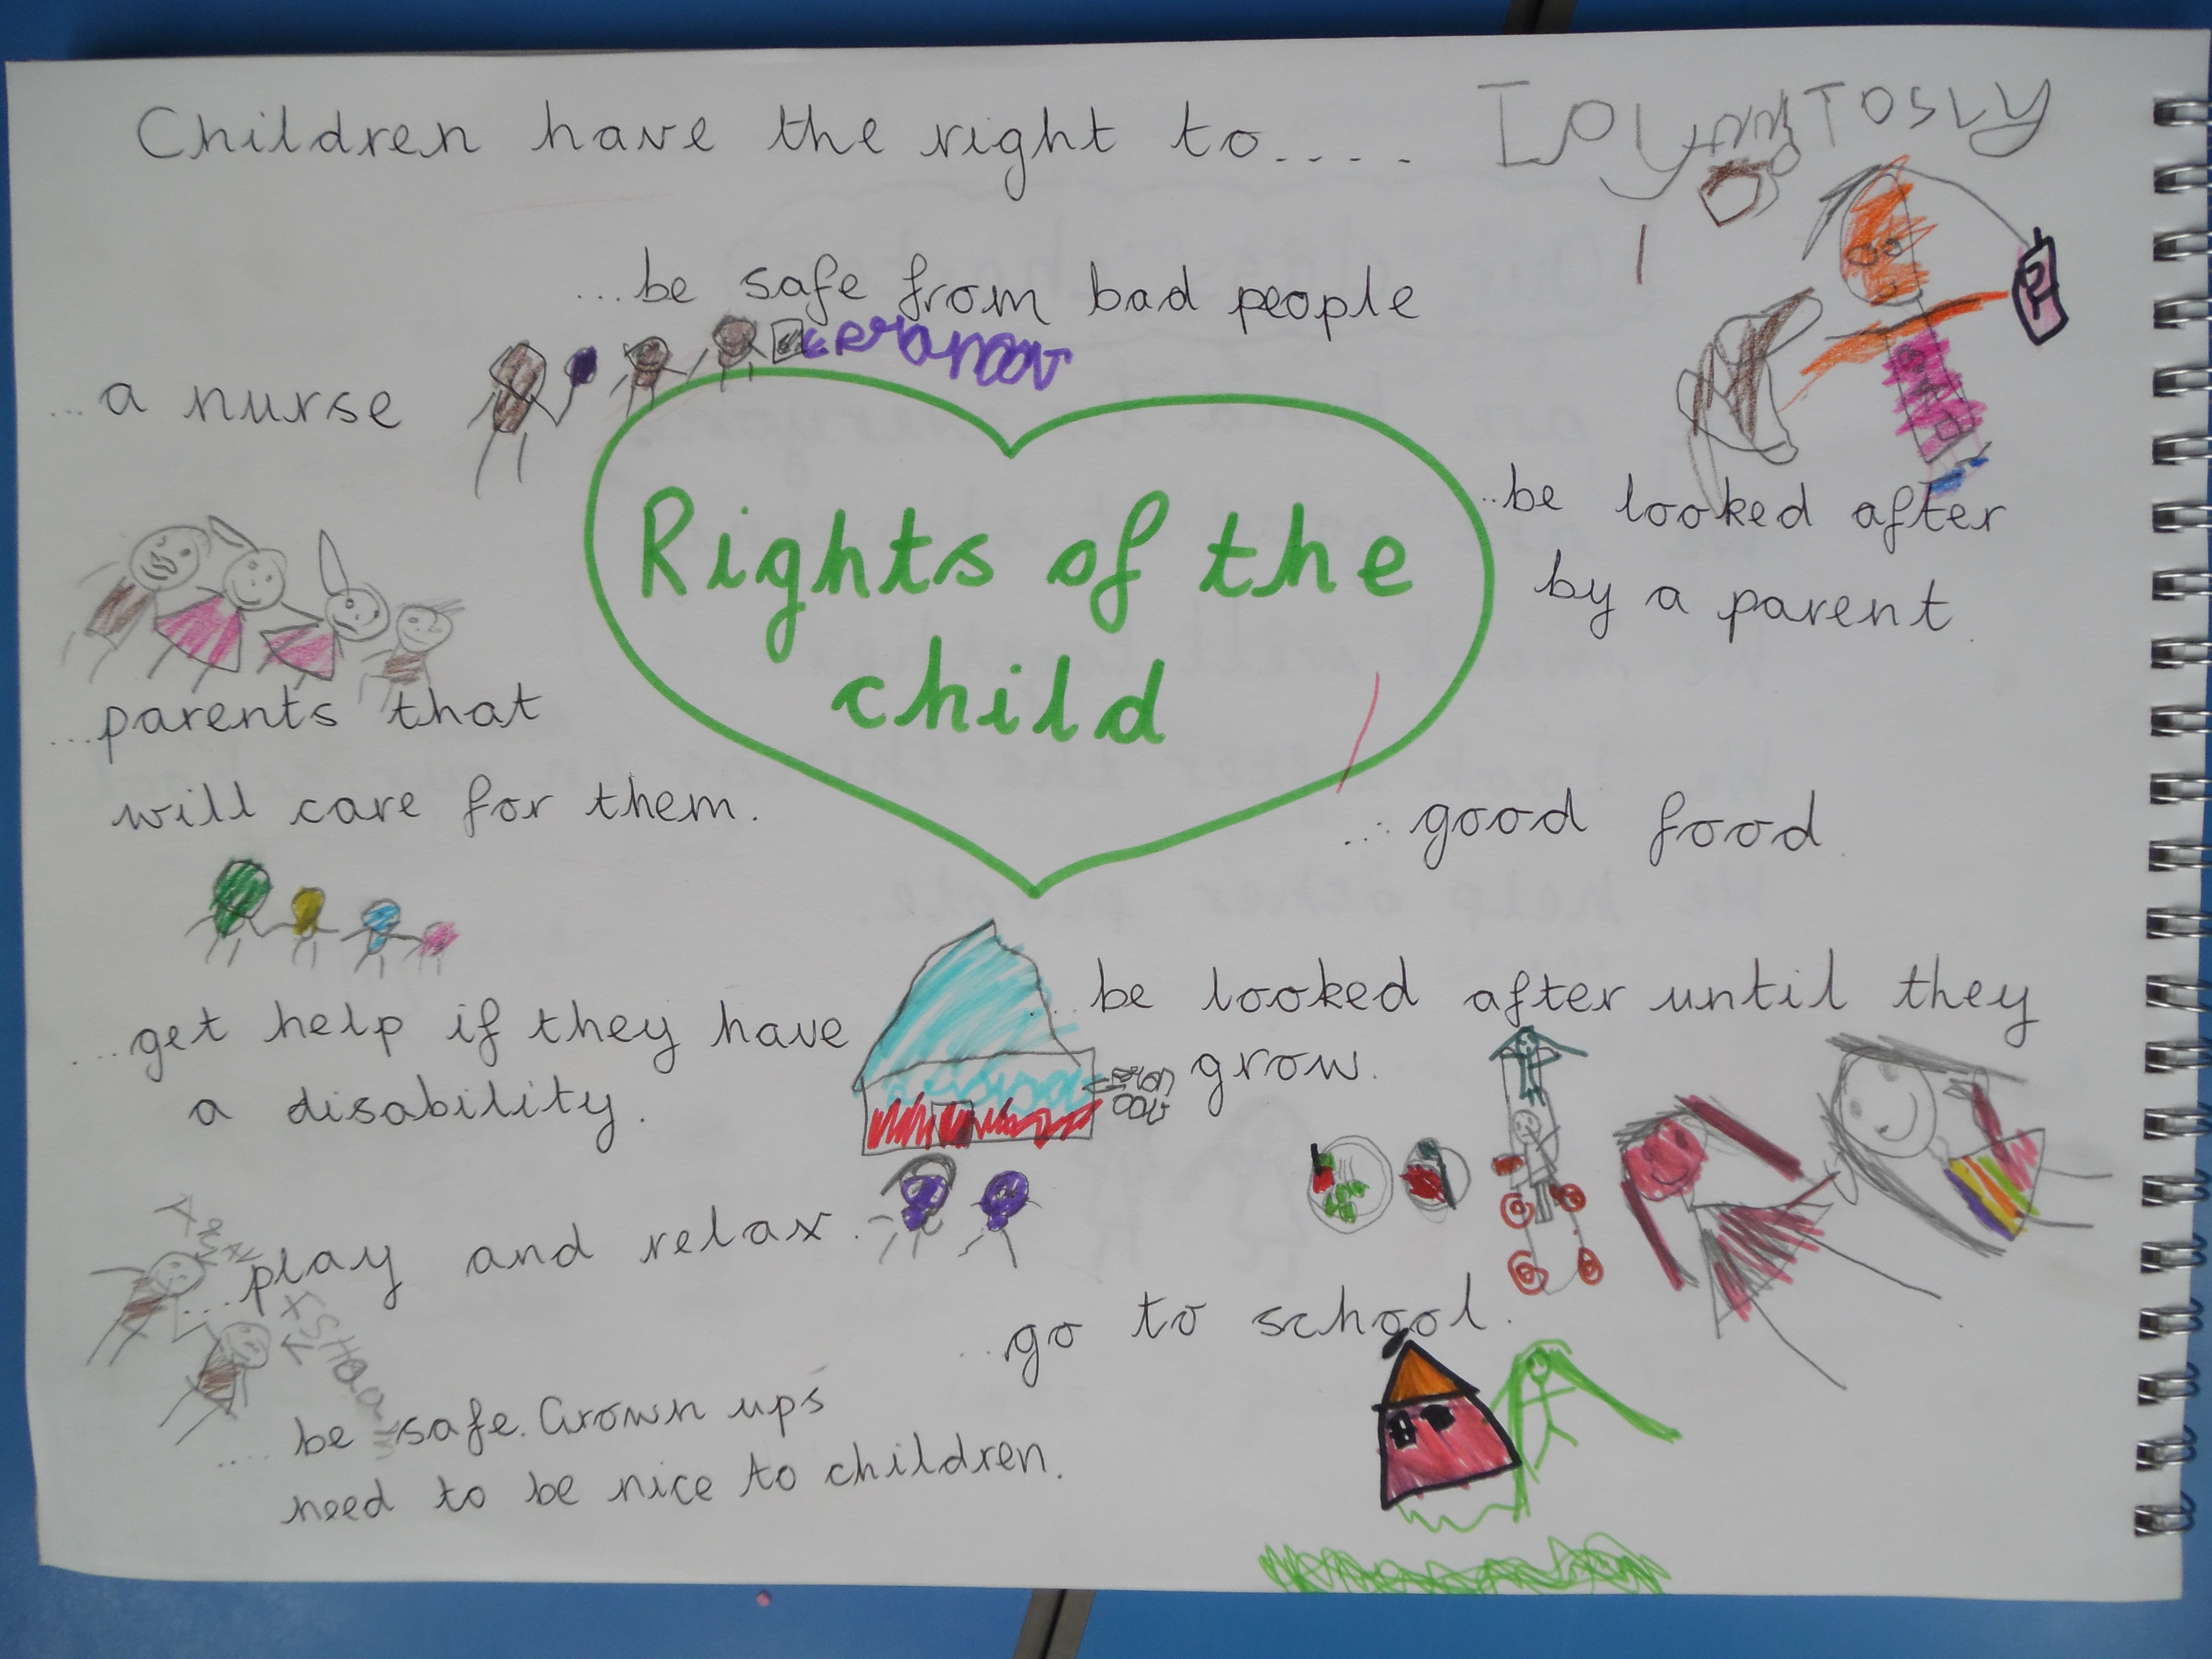 Children have the right to....
...be safe from bad people
...a nurse
Rights of the
child
..be looked after
by a parent.
...parents that
will care for them.
...good food
...be looked after until they
grow.
...get help if they have
a disability.
...play and relax.
...go to school.
....be safe. Grown ups
need to be nice to children.